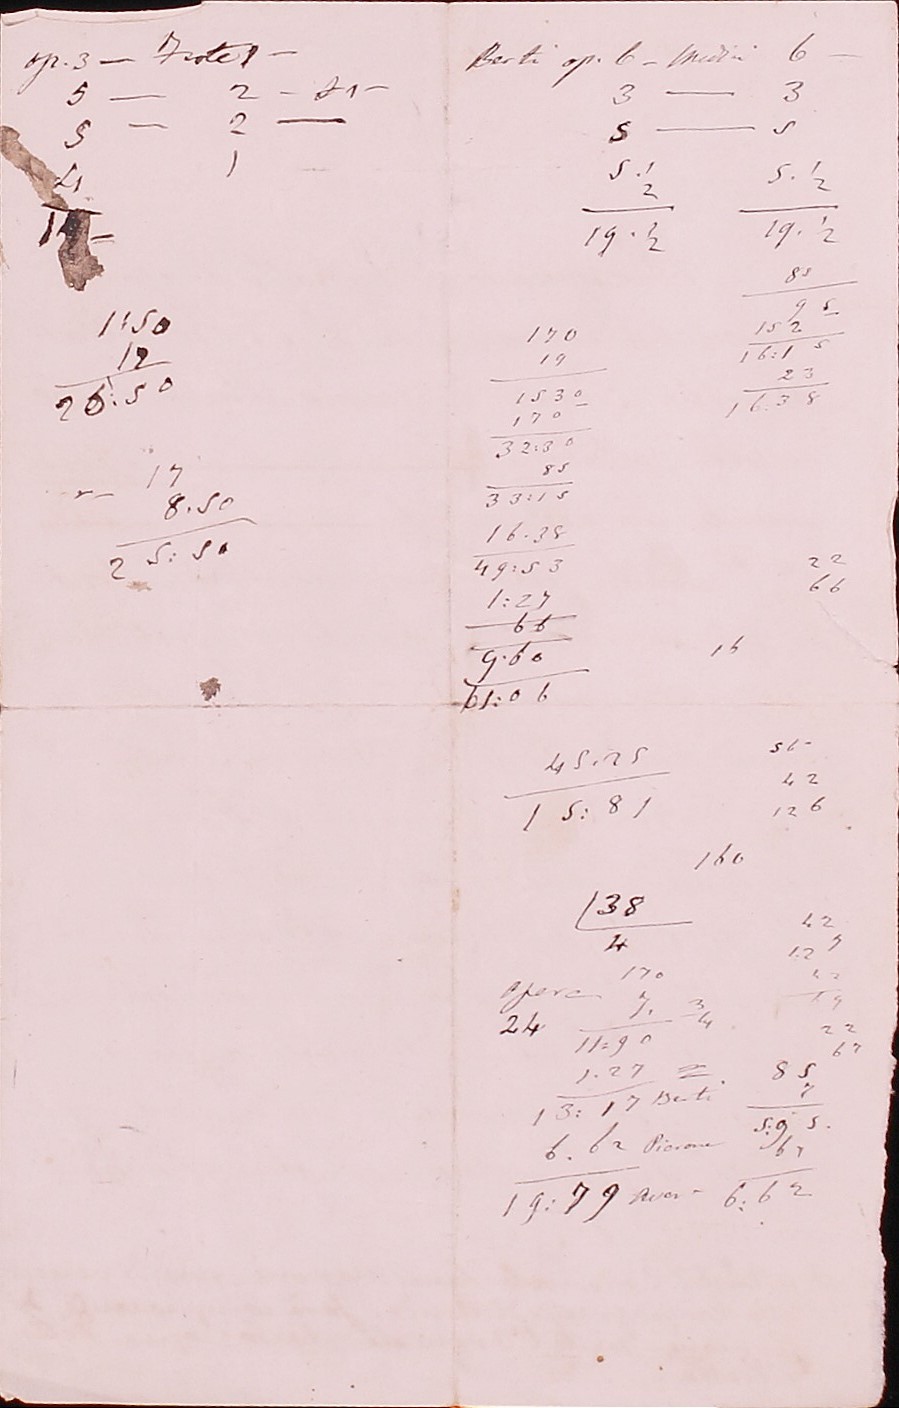 op. 3 —
5 — 2 —
5 — 2 —
4 1
1:50
26:50
17
8.50
25:50
Berti op. 6 — 6 —
3 — 3
5 — 5
5.1/2 5.1/2
19.1/2 19.1/2
85
9 5
152
16:15
23
16.38
170
19
1530
170
32:30
85
33:15
16.38
49:53
1:27
66
9.60
61:06
22
66
16
45.25
15:81
56
42
126
160
38
4
42
1.27
42
69
22
67
170
opera 7. 3/4
24
11:90
1.27
13:17 Berti
6.62
19:79
85
7
5:95.
67
6:62